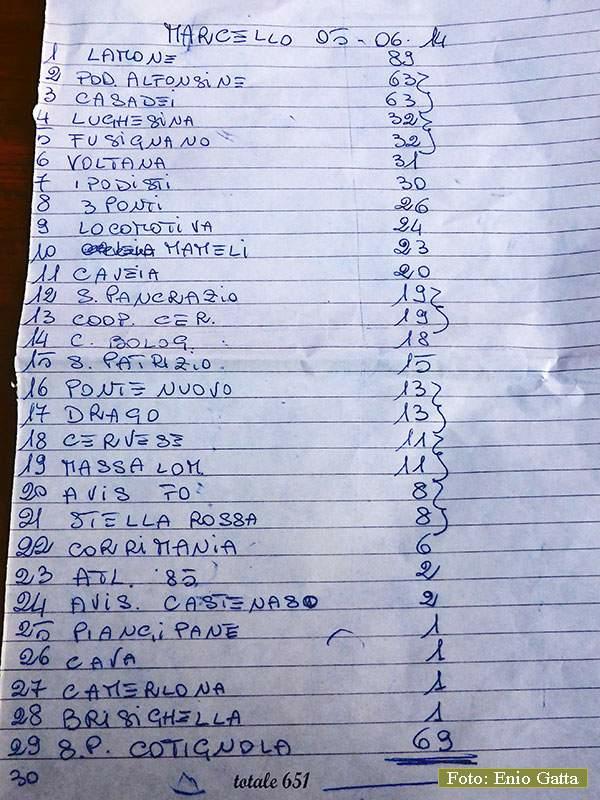 MARCELLO 05-06.14
1 LAMONE 89
2 POD. ALFONSINE 63
3 CASADEI 63
4 LUGHESINA 32
5 FUSIGNANO 32
6 VOLTANA 31
7 IPODISTI 30
8 3 PONTI 26
9 LOCOMOTIVA 24
10 MAMELI 23
11 CAVEIA 20
12 S. PANCRAZIO 19
13 COOP. CER. 19
14 C. BOLOG. 18
15 S. PATRIZIO. 15
16 PONTE NUOVO 13
17 DRAGO 13
18 CERVESE 11
19 MASSA LOM. 11
20 AVIS FO 8
21 STELLA ROSSA 8
22 CORRIMANIA 6
23 ATL. 85 2
24 AVIS. CASTENASO 2
25 PIANGIPANE 1
26 CAVA 1
27 CAMERLONA 1
28 BRISIGHELLA 1
29 S.P. COTIGNOLA 69
30 totale 651
Foto: Enio Gatta